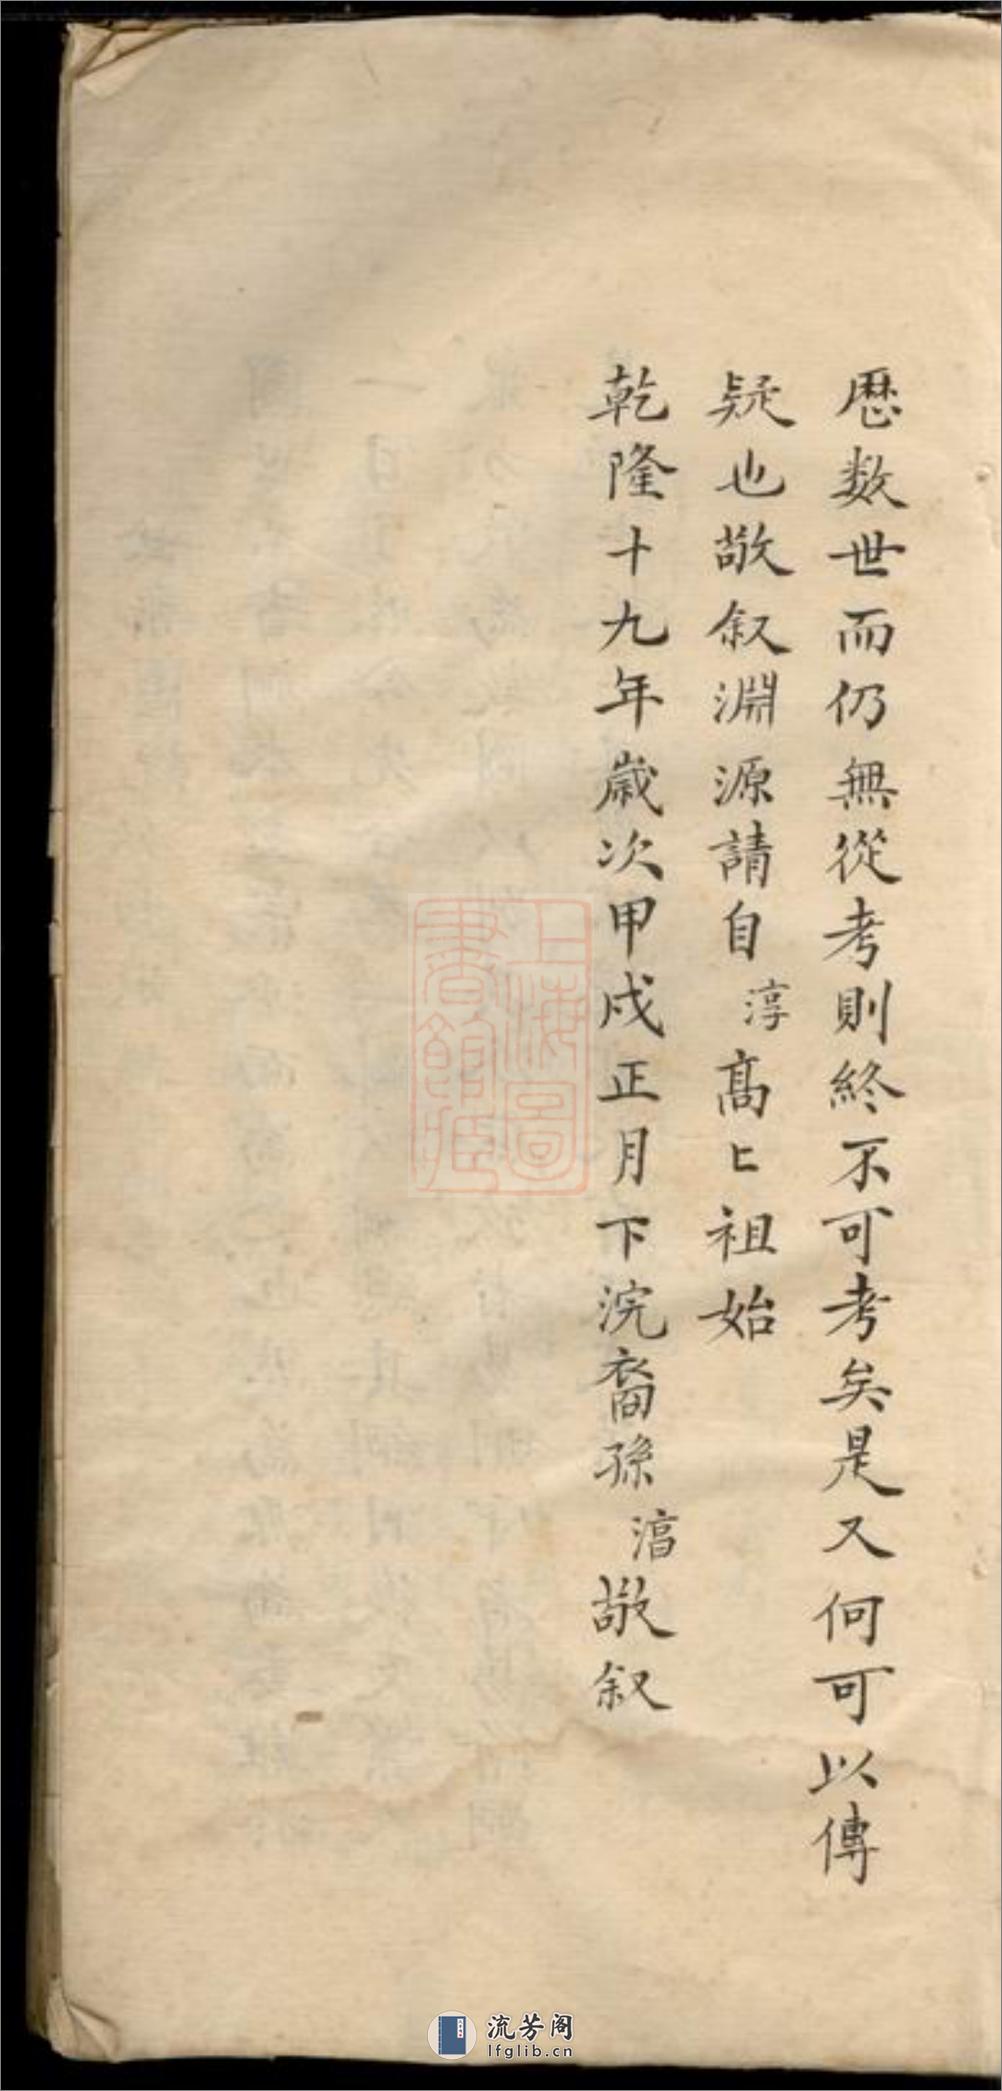 歷數世而仍無從考則終不可考矣是又何可以傳
疑也敬叙淵源請自淳高匕祖始
乾隆十九年歲次甲戌正月下浣裔孫敬叙
上海圖書館藏
流芳阁
lfglib.cn